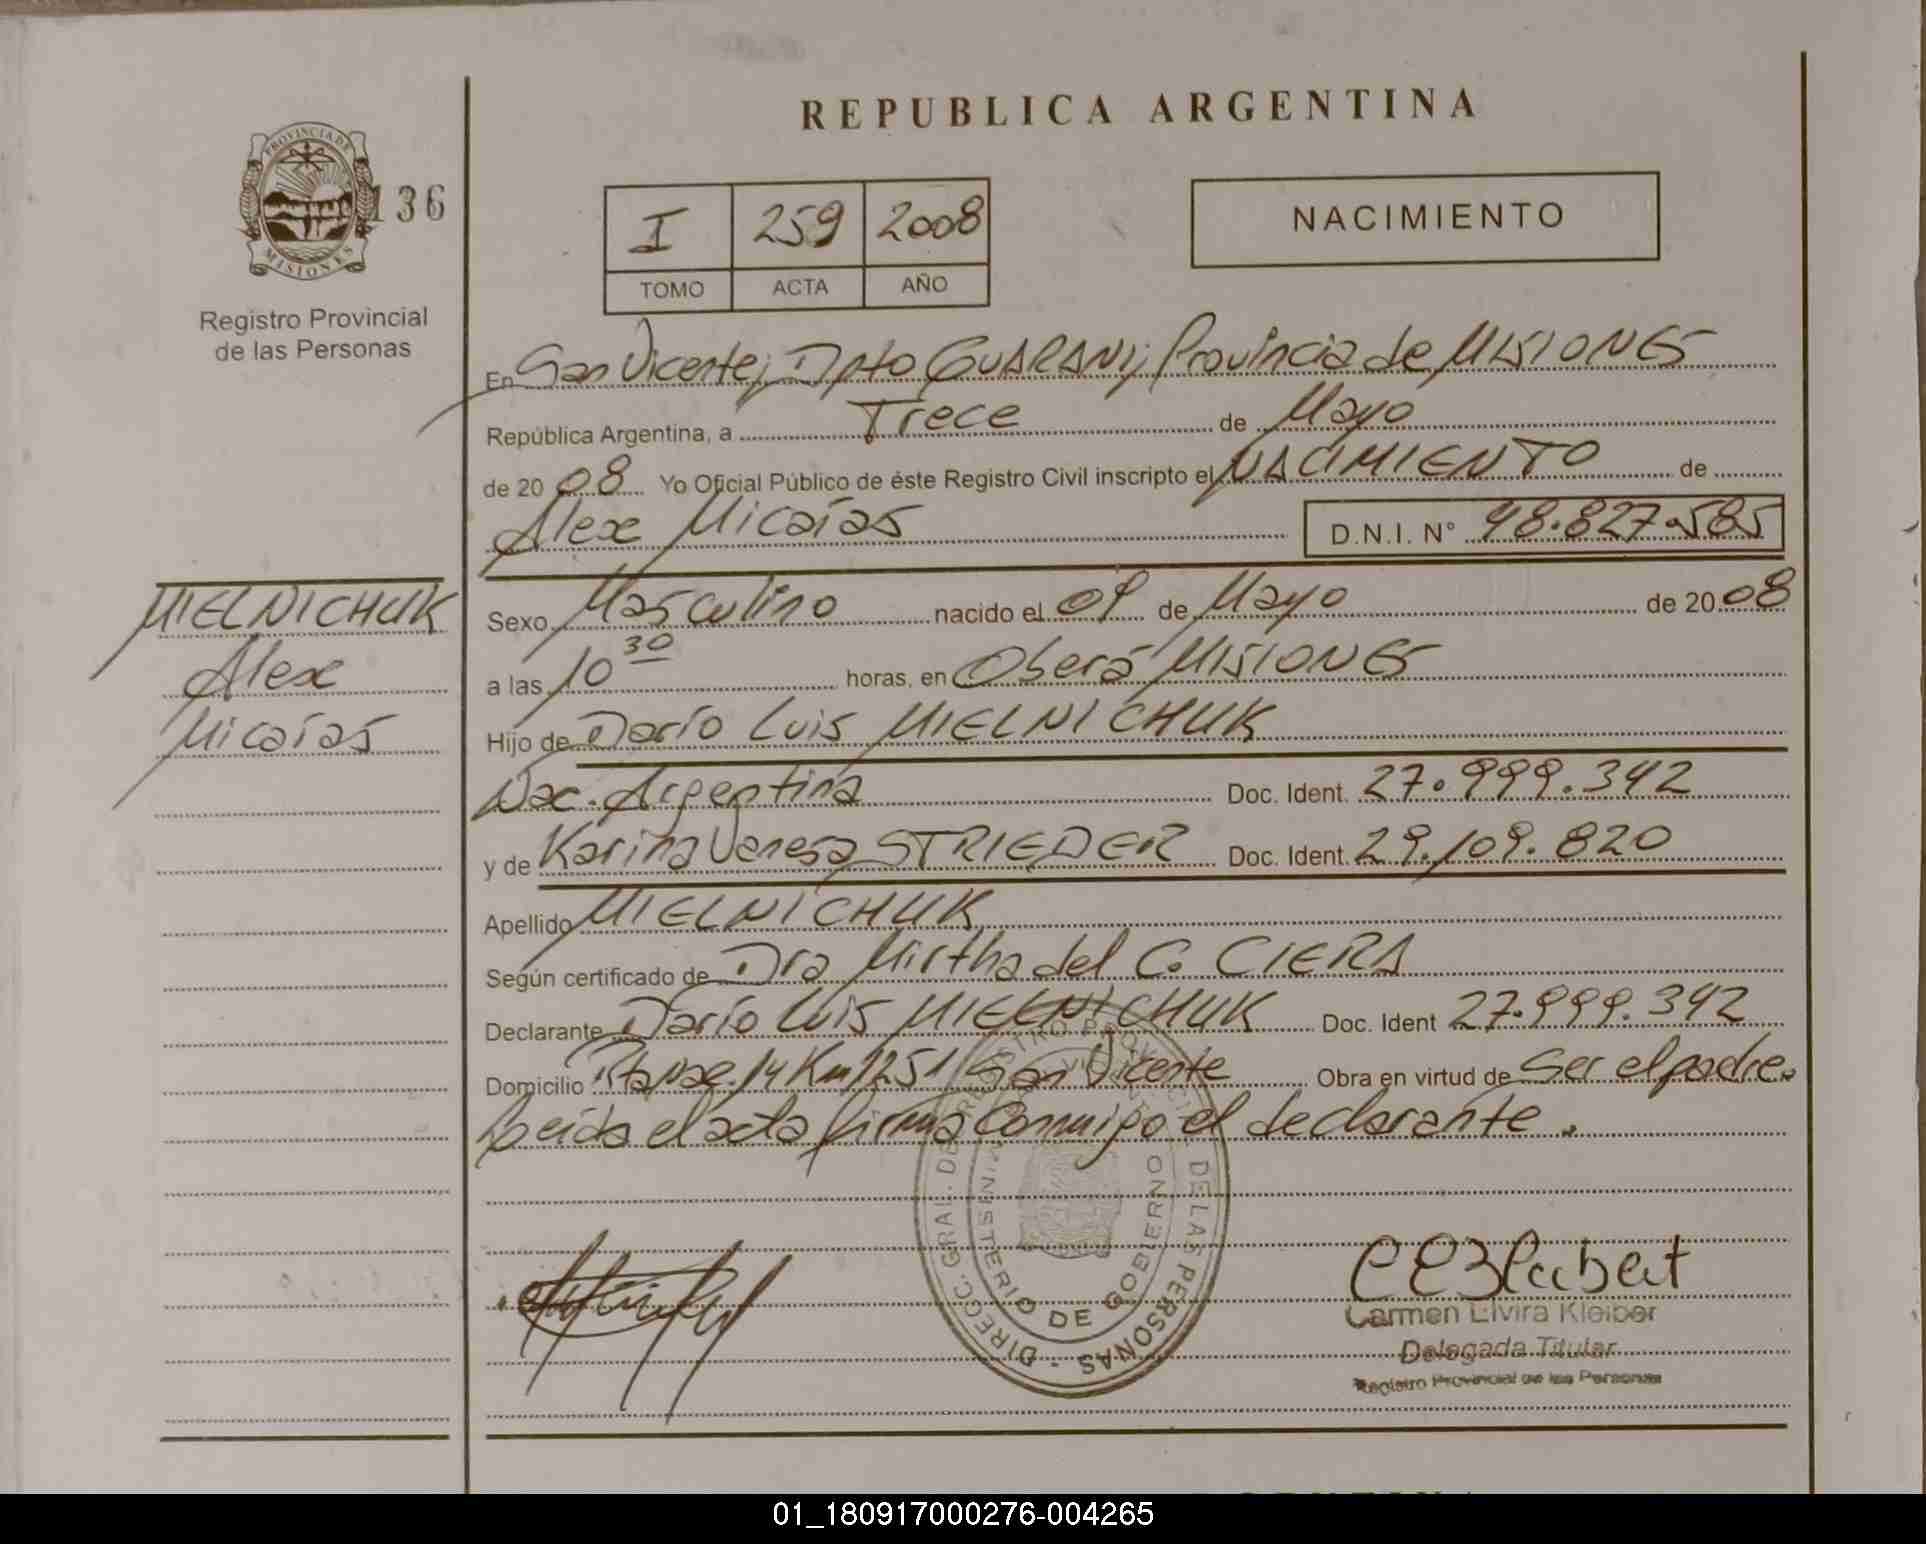 REPUBLICA ARGENTINA
PROVINCIA DE
MISIONES
136
Registro Provincial
de las Personas
I 259 2008
TOMO ACTA AÑO
NACIMIENTO
En San Vicente, Dpto GUARANI, Provincia de MISIONES
República Argentina, a Trece de Mayo
de 20 08 Yo Oficial Público de éste Registro Civil inscripto el NACIMIENTO de
Alex Micaías D.N.I. N° 48.827.585
MIELNICHUK
Alex
Micaías
Sexo Masculino nacido el 09 de Mayo de 20 08
a las 10 30 horas, en Oberá MISIONES
Hijo de Darío Luis MIELNICHUK
Nac. Argentina Doc. Ident. 27.999.342
y de Karina Vanesa STRIEDER Doc. Ident. 29.109.820
Apellido MIELNICHUK
Según certificado de Dra Mirtha del C. CIERA
Declarante Darío Luis MIELNICHUK Doc. Ident 27.999.342
Domicilio Rta Nac. 14 Km 1251 San Vicente Obra en virtud de Ser el padre.
Leida el acta firma Conmigo el declarante.
DIRECC. GRAL. DEL REGISTRO PROVINCIAL DE LAS PERSONAS
MINISTERIO DE GOBIERNO
Carmen Elvira Kleiber
Delegada Titular
Registro Provincial de las Personas
01_180917000276-004265